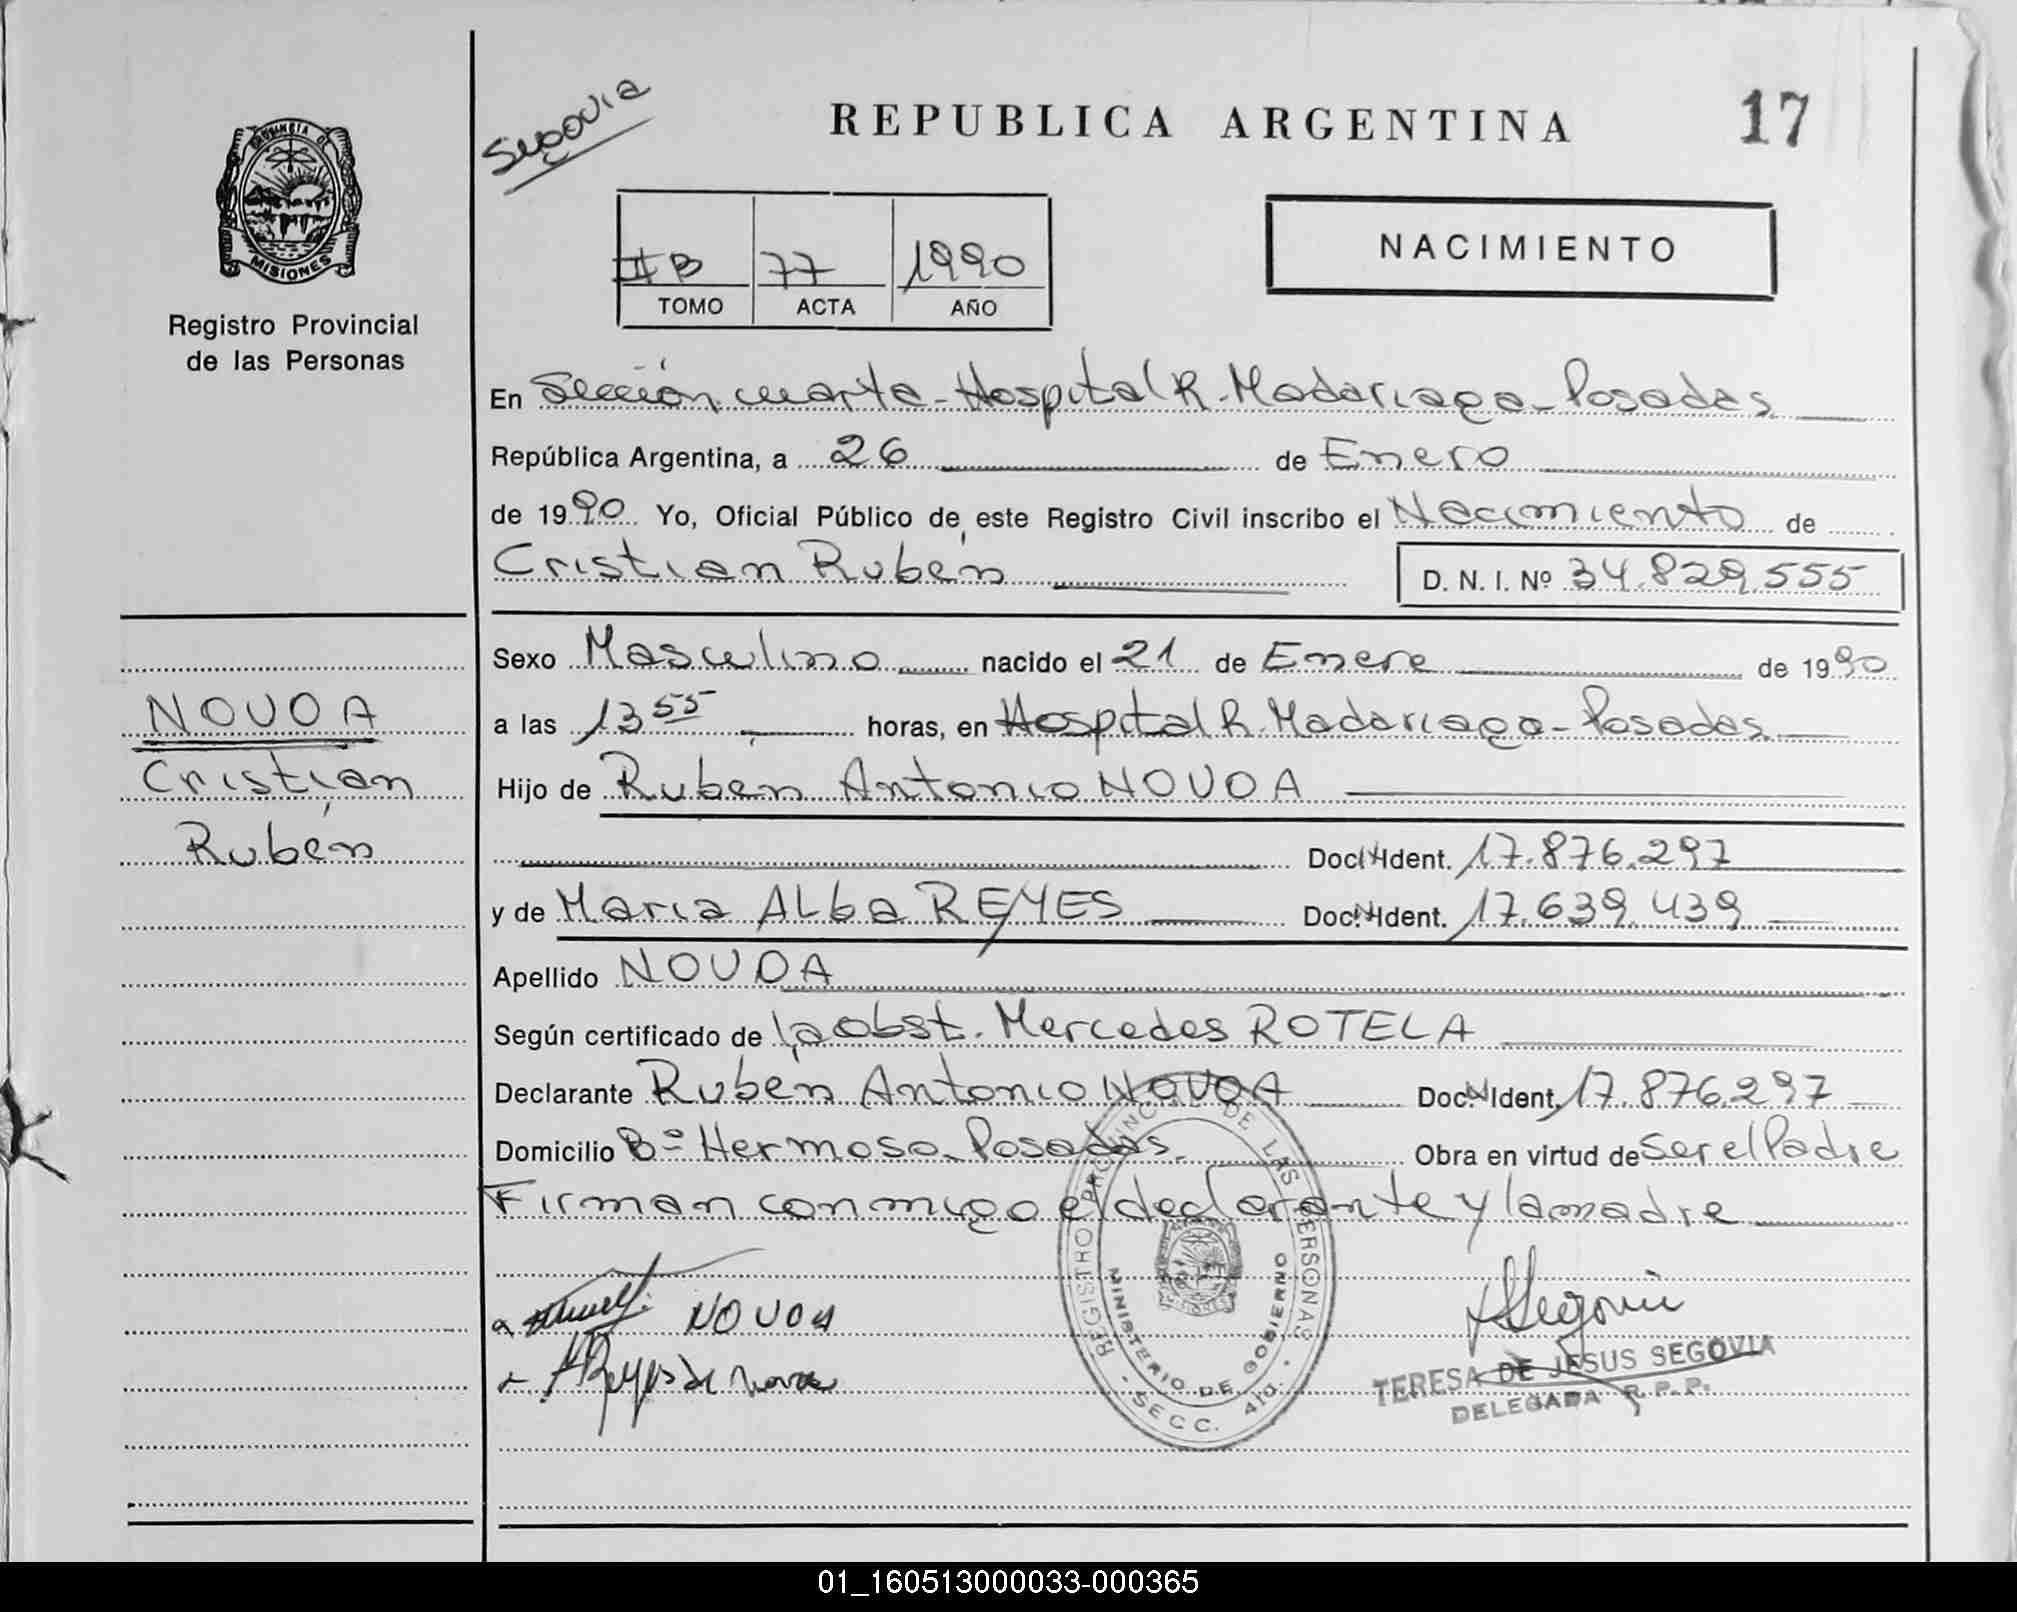 REPUBLICA ARGENTINA
17
Segovia
PROVINCIA DE
MISIONES
Registro Provincial
de las Personas
II B 77 1990
TOMO ACTA AÑO
NACIMIENTO
En Sección cuarta - Hospital R. Madariaga - Posadas
República Argentina, a 26 de Enero
de 1990 Yo, Oficial Público de este Registro Civil inscribo el Nacimiento de
Cristian Rubén D. N. I. Nº 34.829.555
Sexo Masculino nacido el 21 de Enero de 1990
a las 13 55 horas, en Hospital R. Madariaga - Posadas
Hijo de Rubén Antonio NOVOA
Doc. N. Ident. 17.876.297
y de María Alba REYES Doc. N. Ident. 17.639.439
Apellido NOVOA
Según certificado de la obst. Mercedes ROTELA
Declarante Rubén Antonio NOVOA Doc. N. Ident. 17.876.297
Domicilio Bº Hermoso - Posadas. Obra en virtud de ser el Padre
Firman conmigo el declarante y la madre
NOVOA
Cristian
Rubén
NOVOA
A Reyes de Novoa
REGISTRO PROVINCIAL DE LAS PERSONAS
MINISTERIO DE GOBIERNO
- SECC. 4ta. -
Segovia
TERESA DE JESUS SEGOVIA
DELEGADA R. P. P.
01_160513000033-000365